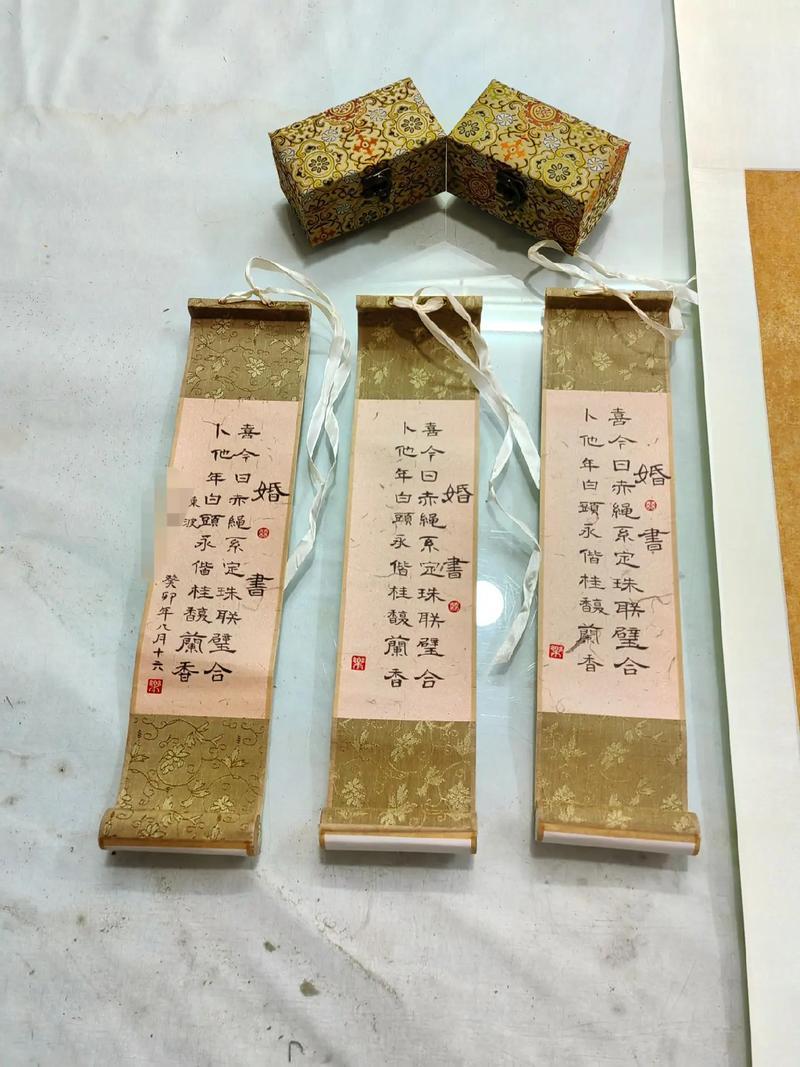 婚書
喜今日赤繩系定珠联璧合
卜他年白頭永偕桂馥蘭香
東波
癸卯年八月十六
婚書
喜今日赤繩系定珠联璧合
卜他年白頭永偕桂馥蘭香
婚書
喜今日赤繩系定珠联璧合
卜他年白頭永偕桂馥蘭香